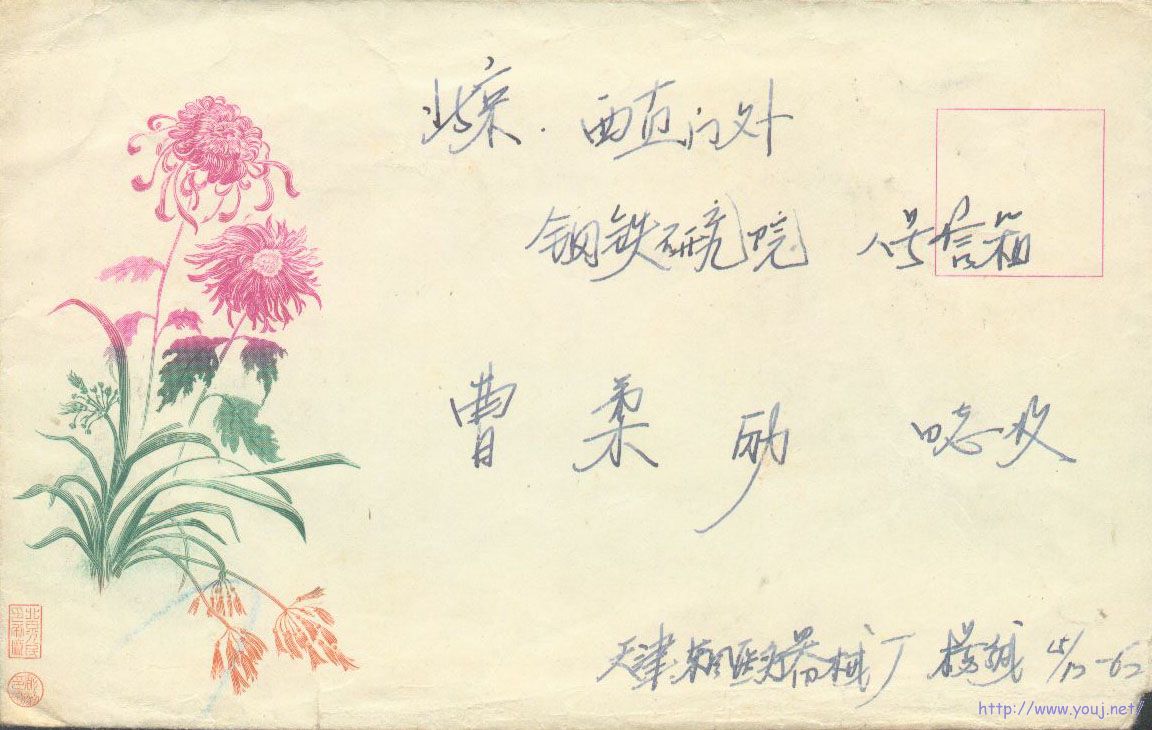 北京. 西直门外
钢铁研究院 八号信箱
曹柔励 同志收
天津 医疗器械厂 15/12-62
http://www.youj.net/